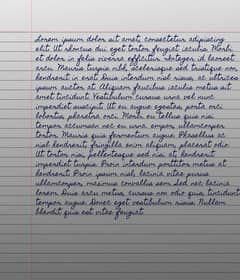 Lorem ipsum dolor sit amet, consectetur adipiscing
elit. Ut rhoncus dui eget tortor feugiat iaculis. Morbi
et dolor in felis viverra efficitur. Integer id laoreet
arcu. Mauris turpis nibh, scelerisque sed tristique non,
hendrerit in erat. Duis interdum nisl risus, ac ultrices
ipsum auctor at. Aliquam faucibus iaculis metus sit
amet tincidunt. Vestibulum cursus urna vel nunc
imperdiet suscipit. Ut eu augue egestas, porta orci
lobortis, pharetra orci. Morbi eu tellus quis nisi
tempor accumsan nec eu urna. ullamcorper
tortor. Mauris quis fermentum augue. Phasellus ac
nisl hendrerit, fringilla enim aliquam, placerat odio.
Ut tortor nisi, pellentesque sed nisi at, hendrerit
imperdiet turpis. Proin interdum porttitor metus at
hendrerit. Proin ipsum nisl, lacinia vitae purus
ullamcorper, maximus convallis sem. Sed nec lacinia
lorem. Duis arcu metus, cursus non odio quis, tincidunt
tempor augue. Donec eget vestibulum risus. Nullam
blandit quis est vitae feugiat.